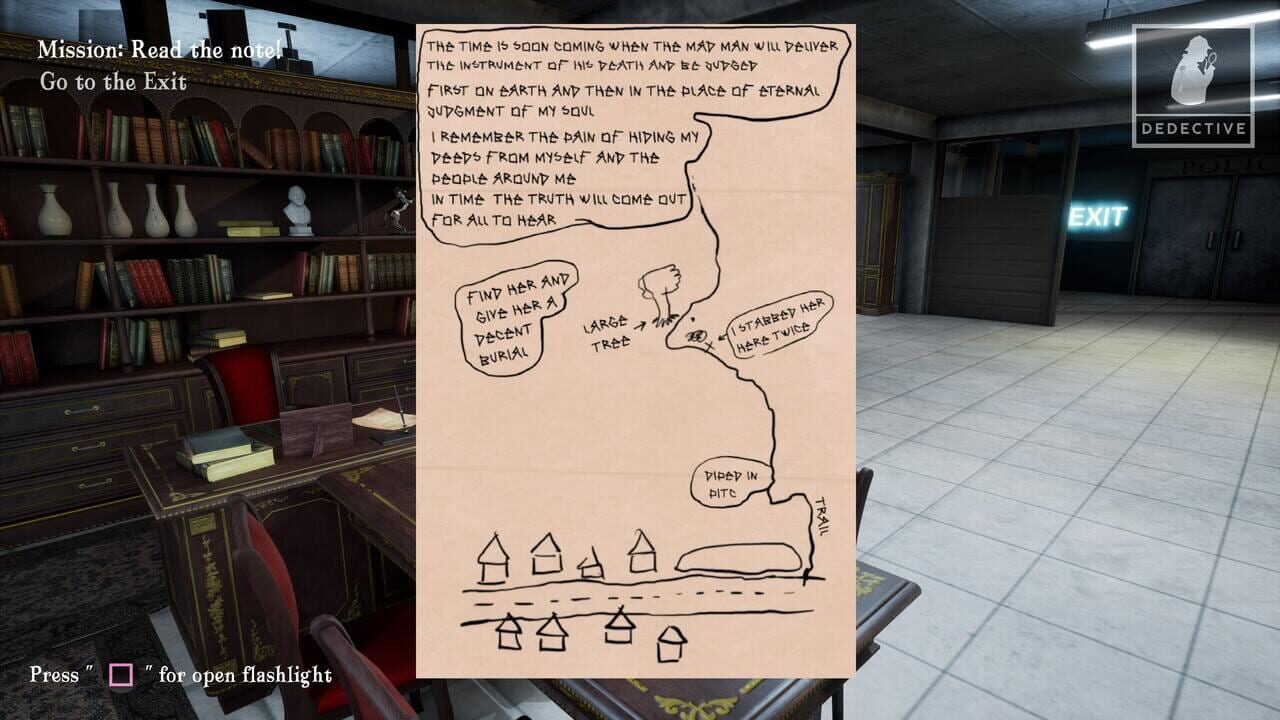 Mission: Read the note!
Go to the Exit
THE TIME IS SOON COMING WHEN THE MAD MAN WILL DELIVER
THE INSTRUMENT OF HIS DEATH AND BE JUDGED
FIRST ON EARTH AND THEN IN THE PLACE OF ETERNAL
JUDGMENT OF MY SOUL
I REMEMBER THE PAIN OF HIDING MY
DEEDS FROM MYSELF AND THE
PEOPLE AROUND ME
IN TIME THE TRUTH WILL COME OUT
FOR ALL TO HEAR
FIND HER AND
GIVE HER A
DECENT
BURIAL
LARGE
TREE
I STABBED HER
HERE TWICE
DIPED IN
PITC
TRAIL
DEDECTIVE
POLIC
EXIT
Press " " for open flashlight